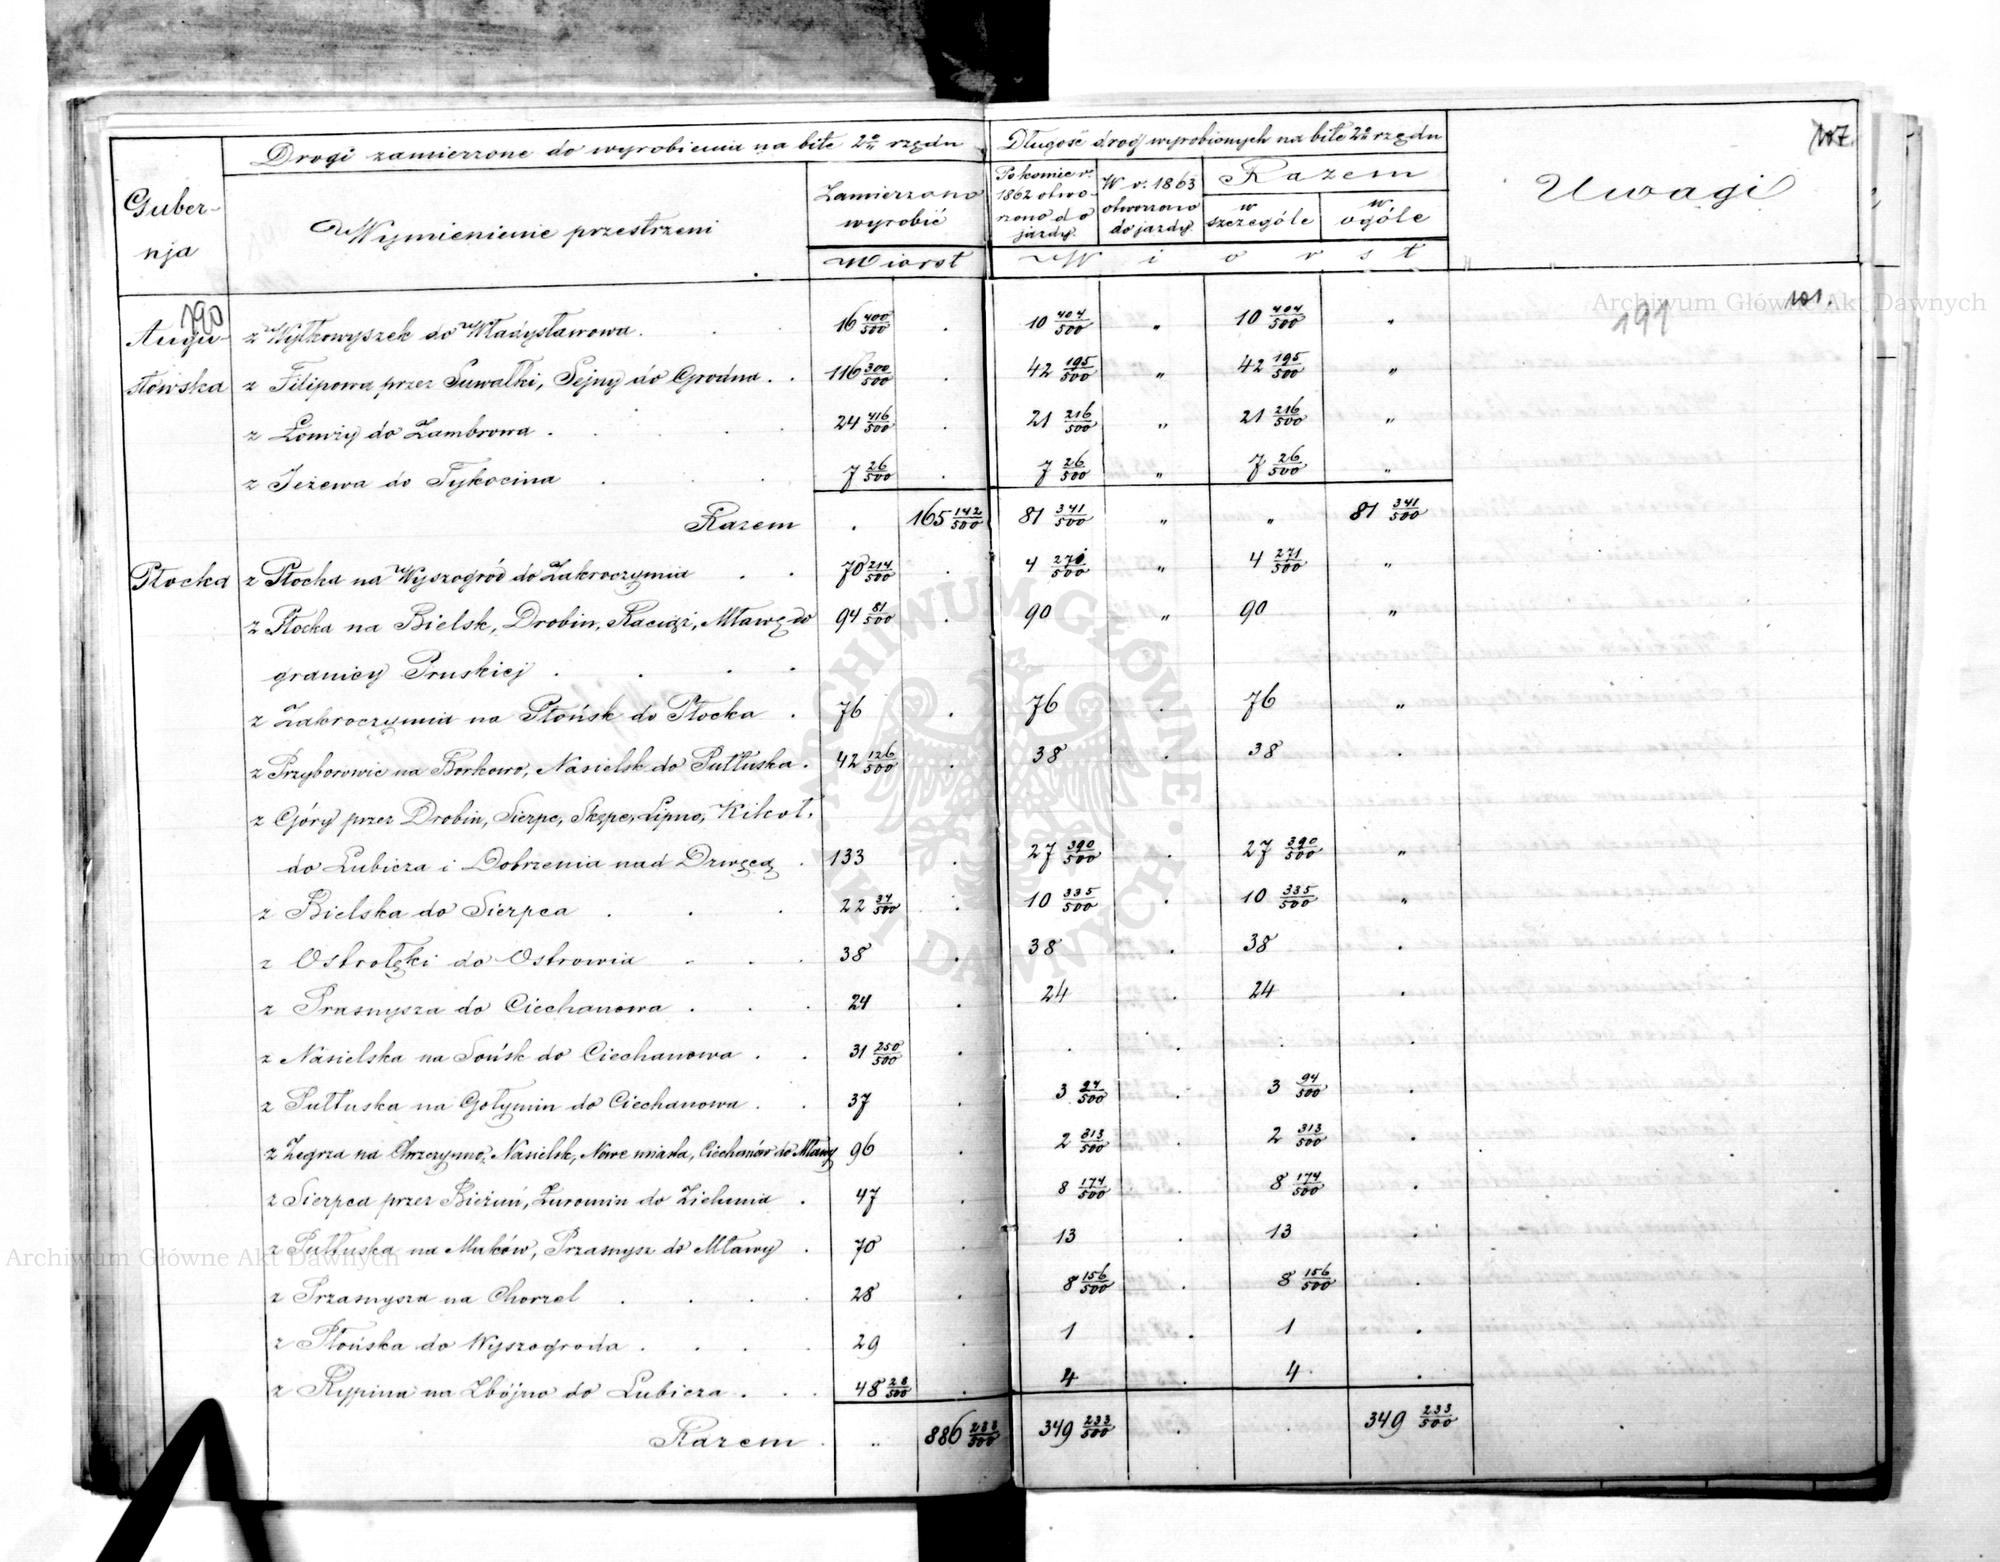 Drogi zamierzone do wyrobienia na bite 2º rzędu Długość dróg wyrobionych na bite 2º rzędu 107.
Guber-
nja
Wymienienie przestrzeni
Zamierzono
wyrobić
Wiorst
Po koniec r.
1862 otwo-
rzono do
jazdy.
W r. 1863
otworzono
do jazdy.
Razem
w
szczególe
w
ogóle
W i o r s t
Uwagi
190 191 101.
Augu- z Wyłkowyszek do Władysławowa. 16 400/500 . 10 404/500 " 10 404/500 "
stowska z Filipowa przez Suwałki, Sejny do Grodna . . 116 300/500 . 42 195/500 " 42 195/500 "
z Łomży do Zambrowa . 24 416/500 . 21 216/500 " 21 216/500 "
z Jeżewa do Tykocina 7 26/500 . 7 26/500 " 7 26/500 "
Razem . 165 142/500 81 341/500 " " 81 341/500
Płocka z Płocka na Wyszogród do Zakroczymia . . 70 214/500 . 4 271/500 " 4 271/500 "
z Płocka na Bielsk, Drobin, Raciąż, Mławę do 94 81/500 . 90 " 90 "
granicy Pruskiej . . . .
z Zakroczymia na Płońsk do Płocka . 76 . 76 . 76 "
z Przyborowic na Borkowo, Nasielsk do Pułtuska . 42 126/500 . 38 . 38 .
z Góry przez Drobin, Sierpc, Skępe, Lipno, Kikoł.
do Lubicza i Dobrzenia nad Drwęcą . 133 . 27 390/500 . 27 390/500 "
z Bielska do Sierpca . . . 22 37/500 . 10 335/500 . 10 335/500 "
z Ostrołęki do Ostrowia . . . 38 . 38 . 38 .
z Prasnysza do Ciechanowa . . . 24 . 24 . 24 .
z Nasielska na Sońsk do Ciechanowa . . 31 250/500 . . . . .
z Pułtuska na Gołymin do Ciechanowa . . 37 . 3 94/500 . 3 94/500 .
z Zegrza na Chrzczynno, Nasielsk, Nowe miasta, Ciechanów do Mławy 96 . 2 313/500 . 2 313/500 .
z Sierpca przez Bieżuń, Żuromin do Zielunia . 47 . 8 174/500 . 8 174/500 .
z Pułtuska na Maków, Przasnysz do Mławy . 70 . 13 . 13 .
z Przasnysza na Chorzel . . . . 28 . 8 156/500 . 8 156/500 .
z Płońska do Wyszogroda . . . . 29 . 1 . 1 .
z Rypina na Zbójno do Lubicza . . . 48 28/500 . 4 . 4 .
Razem . " 886 233/500 349 233/500 . . 349 233/500
Archiwum Główne Akt Dawnych
Archiwum Główne Akt Dawnych
ARCHIWUM GŁÓWNE AKT DAWNYCH